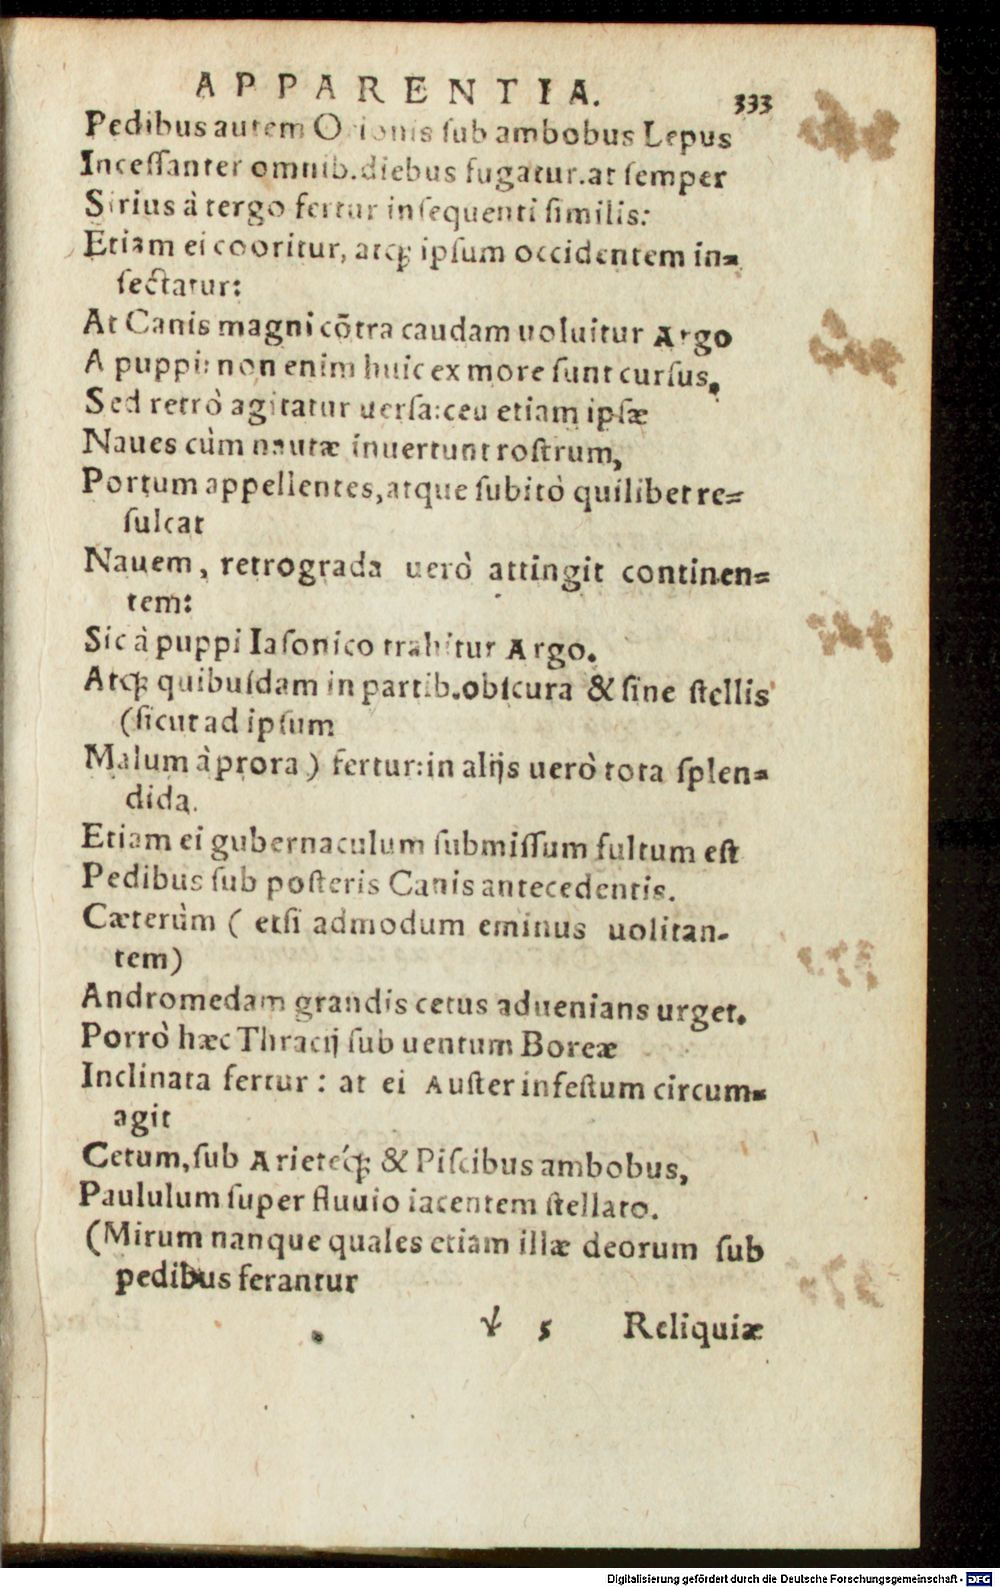 APPARENTIA. 333
Pedibus autem Orionis ſub ambobus Lepus
Inceſſanter omnib. diebus fugatur. at ſemper
Sirius à tergo fertur inſequenti ſimilis:
Etiam ei cooritur, atqꝫ ipſum occidentem in=
ſectatur:
At Canis magni cōtra caudam uoluitur Argo
A puppi: non enim huic ex more ſunt curſus,
Sed retrò agitatur uerſa: ceu etiam ipſæ
Naues cùm nautæ inuertunt roſtrum,
Portum appellentes, atque ſubitò quilibet re=
ſulcat
Nauem, retrograda uerò attingit continen=
tem:
Sic à puppi Iaſonico trahitur Argo.
Atqꝫ quibuſdam in partib. obſcura & ſine ſtellis
(ſicut ad ipſum
Malum à prora) fertur: in alijs uerò tota ſplen=
dida.
Etiam ei gubernaculum ſubmiſſum fultum eſt
Pedibus ſub poſteris Canis antecedentis.
Cæterùm ( etſi admodum eminus uolitan-
tem)
Andromedam grandis cetus aduenians urget.
Porrò hæc Thracij ſub uentum Boreæ
Inclinata fertur: at ei Auſter infeſtum circum=
agit
Cetum, ſub Arieteq́ꝫ & Piſcibus ambobus,
Paululum ſuper fluuio iacentem ſtellato.
(Mirum nanque quales etiam illæ deorum ſub
pedibus ferantur
5 Reliquiæ
Digitalisierung gefördert durch die Deutsche Forschungsgemeinschaft - DFG